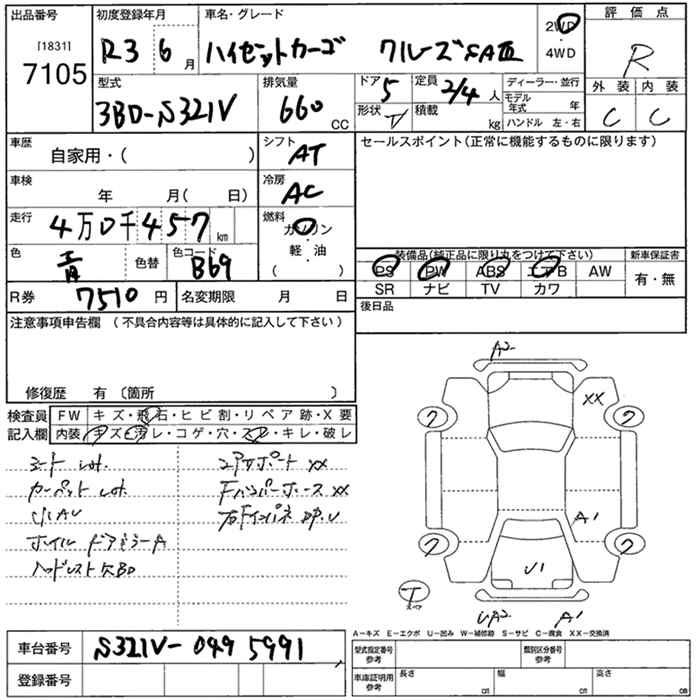 出品番号
[1831]
7105
初度登録年月
R3 6 月
車名・グレード
ハイゼットカーゴ クルーズSAⅢ
2WD
・
4WD
評価点
R
外装 内装
C C
型式
3BD-S321V
排気量
660 CC
ドア 5
形状 V
定員 2/4 人
積載 kg
ディーラー・並行
モデル年式 年
ハンドル 左・右
車歴
自家用・( )
シフト
AT
セールスポイント(正常に機能するものに限ります)
車検
年 月( 日)
冷房
AC
走行
4万0千457km
燃料
ガソリン
・
軽・油
( )
色
青
色替
色コード
B69
装備品(純正品に限り丸をつけて下さい)
PS PW ABS エアB AW
SR ナビ TV カワ
新車保証書
有・無
R券 7510 円
名変期限 月 日
後日品
注意事項申告欄 (不具合内容等は具体的に記入して下さい)
修復歴 有〔箇所 〕
検査員
記入欄
FW キズ・飛石・ヒビ割・リペア跡・X要
内装 キズ・汚レ・コゲ・穴・スレ・キレ・破レ
シート しみ.
カーペット しみ.
小AU
ホイル ドアミラーA
ヘッドレスト欠品
コアサポート XX
Fバンパーホース XX
右Fインパネ
A2
XX
7
7
A1
7
7
U1
T
スペア
UA2
A1
A-キズ E-エクボ U-凹み W-補修跡 S-サビ C-腐食 XX-交換済
車台番号 S321V-0495991
登録番号
型式指定番号
参考
類別区分番号
参考
車庫証明用
参考
長さ cm
幅 cm
高さ cm